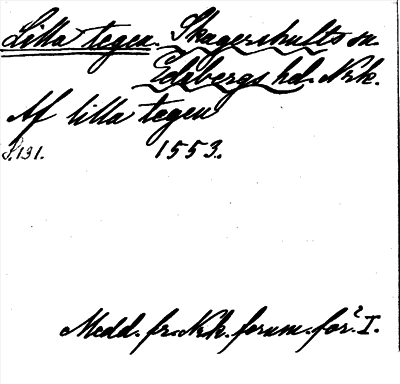 Lilla tegen. Skagershults sn.
Edsbergs hd. Nrk.
Af lilla tegen
S. 131. 1553.
Medd. fr. Nrk. fornm. för. I.